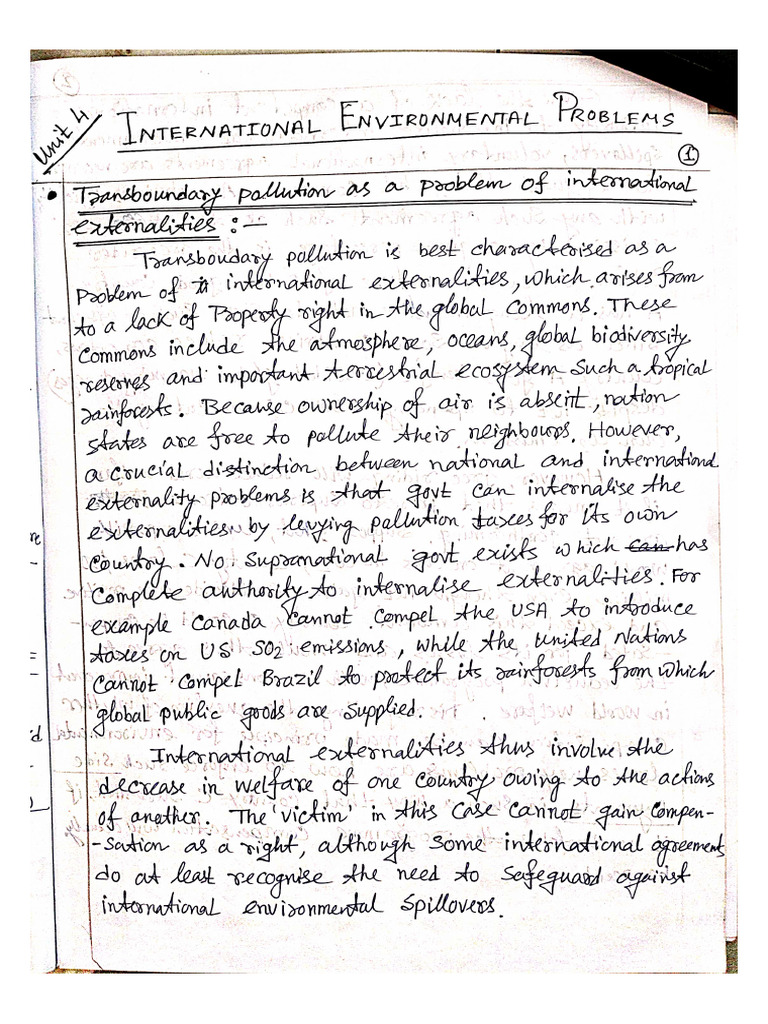 Unit 4
INTERNATIONAL ENVIRONMENTAL PROBLEMS
1
• Transboundary pollution as a problem of international
externalities :—
Transboudary pollution is best characterised as a
problem of international externalities, which arises from
to a lack of Property right in the global commons. These
Commons include the atmosphere, oceans, global biodiversity
reserves and important terrestrial ecosystem such a tropical
rainforests. Because ownership of air is absent, nation
states are free to pollute their neighbours. However,
a crucial distinction between national and international
externality problems is that govt can internalise the
externalities by levying pollution taxes for its own
country. No supranational govt exists which can has
complete authority to internalise externalities. For
example Canada cannot compel the USA to introduce
taxes on US SO2 emissions, while the United Nations
cannot compel Brazil to protect its rainforests from which
global public goods are supplied.
International externalities thus involve the
decrease in welfare of one country owing to the actions
of another. The 'victim' in this case cannot gain compen-
-sation as a right, although some international agreements
do at least recognise the need to safeguard against
international environmental spillovers.